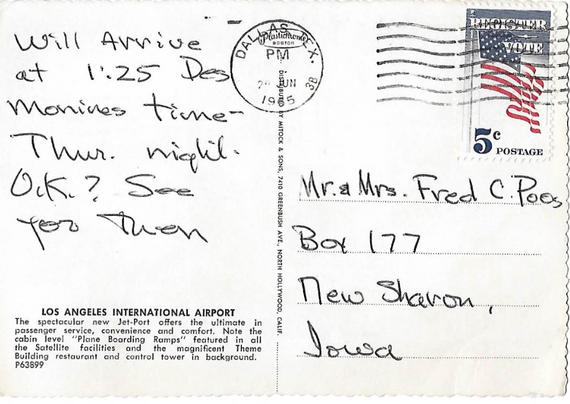 Will Arrive
at 1:25 Des
Monines time-
Thur. night.
O.K.? See
you then
LOS ANGELES INTERNATIONAL AIRPORT
The spectacular new Jet-Port offers the ultimate in
passenger service, convenience and comfort. Note the
cabin level "Plane Boarding Ramps" featured in all
the Satellite facilities and the magnificent Theme
Building restaurant and control tower in background.
P63899
DALLAS, TEX.
Plastichrome
BOSTON
PM
JUN
1965
3B
DISTRIBUTED BY MITOCK & SONS, 7410 GREENBUSH AVE., NORTH HOLLYWOOD, CALIF.
REGISTER
VOTE
5c
POSTAGE
Mr. & Mrs. Fred C. Poos
Box 177
New Sharon,
Iowa